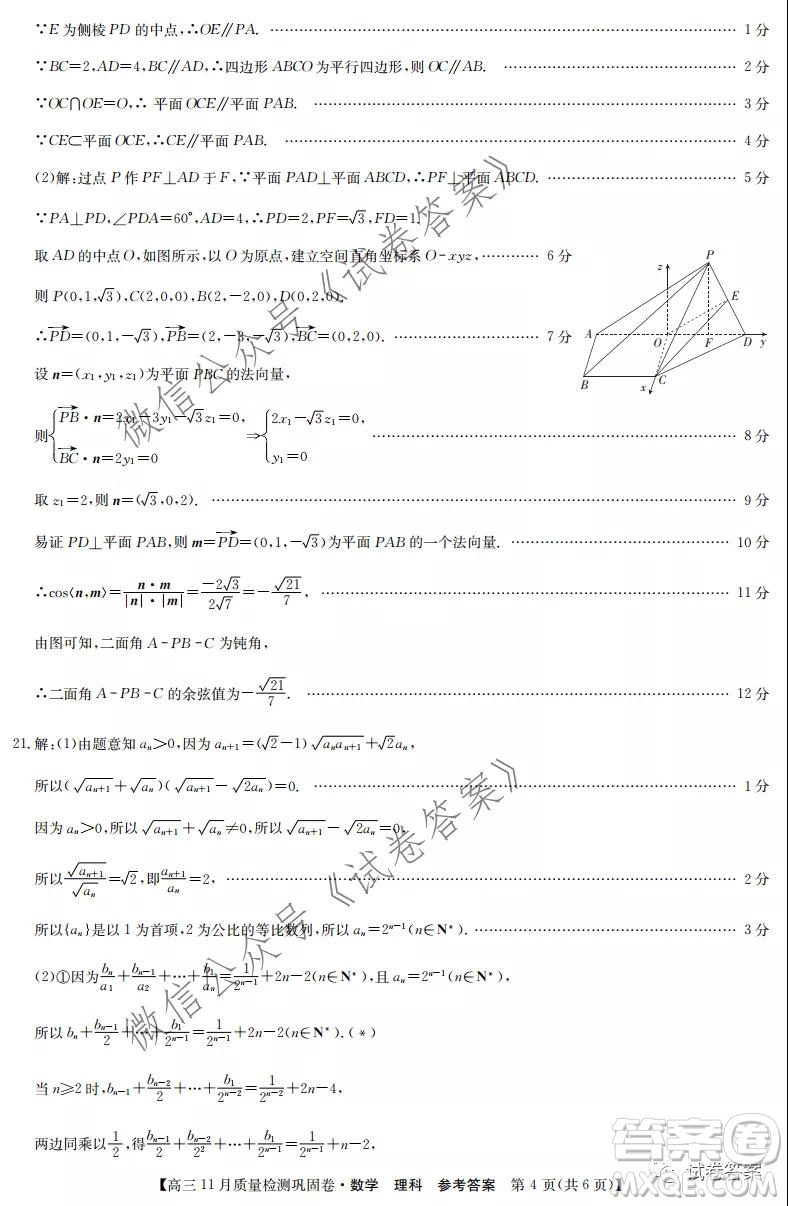 ∵E 为侧棱 PD 的中点,∴OE∥PA. …… 1 分
∵BC=2,AD=4,BC∥AD,∴四边形 ABCO 为平行四边形,则 OC∥AB. …… 2 分
∵OC∩OE=O,∴ 平面 OCE∥平面 PAB. …… 3 分
∵CE⊂平面 OCE,∴CE∥平面 PAB. …… 4 分
(2)解:过点 P 作 PF⊥AD 于 F,∵平面 PAD⊥平面 ABCD,∴PF⊥平面 ABCD. …… 5 分
∵PA⊥PD,∠PDA=60°,AD=4,∴PD=2,PF=√3,FD=1.
取 AD 的中点 O,如图所示,以 O 为原点,建立空间直角坐标系 O-xyz, …… 6 分
则 P(0,1,√3),C(2,0,0),B(2,-2,0),D(0,2,0),
∴PD=(0,1,-√3),PB=(2,-3,-√3),BC=(0,2,0). …… 7 分
设 n=(x₁,y₁,z₁)为平面 PBC 的法向量,
则{PB·n=2x₁-3y₁-√3z₁=0, BC·n=2y₁=0 ⇒{2x₁-√3z₁=0, y₁=0 …… 8 分
取 z₁=2,则 n=(√3,0,2). …… 9 分
易证 PD⊥平面 PAB,则 m=PD=(0,1,-√3)为平面 PAB 的一个法向量. …… 10 分
∴cos⟨n,m⟩=n·m/(|n|·|m|)=-2√3/(2√7)=-√21/7, …… 11 分
由图可知,二面角 A-PB-C 为钝角,
∴二面角 A-PB-C 的余弦值为-√21/7. …… 12 分
z
P
E
A
O
F
D
y
B
x
C
21.解:(1)由题意知 aₙ>0,因为 aₙ₊₁=(√2-1)√(aₙaₙ₊₁)+√2aₙ,
所以(√aₙ₊₁+√aₙ)(√aₙ₊₁-√(2aₙ))=0. …… 1 分
因为 aₙ>0,所以√aₙ₊₁+√aₙ≠0,所以√aₙ₊₁-√(2aₙ)=0,
所以√aₙ₊₁/√aₙ=√2,即aₙ₊₁/aₙ=2, …… 2 分
所以{aₙ}是以 1 为首项,2 为公比的等比数列,所以 aₙ=2ⁿ⁻¹(n∈N*). …… 3 分
(2)①因为bₙ/a₁+bₙ₋₁/a₂+…+b₁/aₙ=1/2ⁿ⁻¹+2n-2(n∈N*),且 aₙ=2ⁿ⁻¹(n∈N*),
所以 bₙ+bₙ₋₁/2+…+b₁/2ⁿ⁻¹=1/2ⁿ⁻¹+2n-2(n∈N*).(*)
当 n≥2 时,bₙ₋₁+bₙ₋₂/2+…+b₁/2ⁿ⁻²=1/2ⁿ⁻²+2n-4,
两边同乘以1/2,得bₙ₋₁/2+bₙ₋₂/2²+…+b₁/2ⁿ⁻¹=1/2ⁿ⁻¹+n-2,
【高三 11 月质量检测巩固卷·数学 理科 参考答案 第 4 页(共 6 页)】
微信公众号《试卷答案》
微信公众号《试卷答案》
试卷答案
答案卷